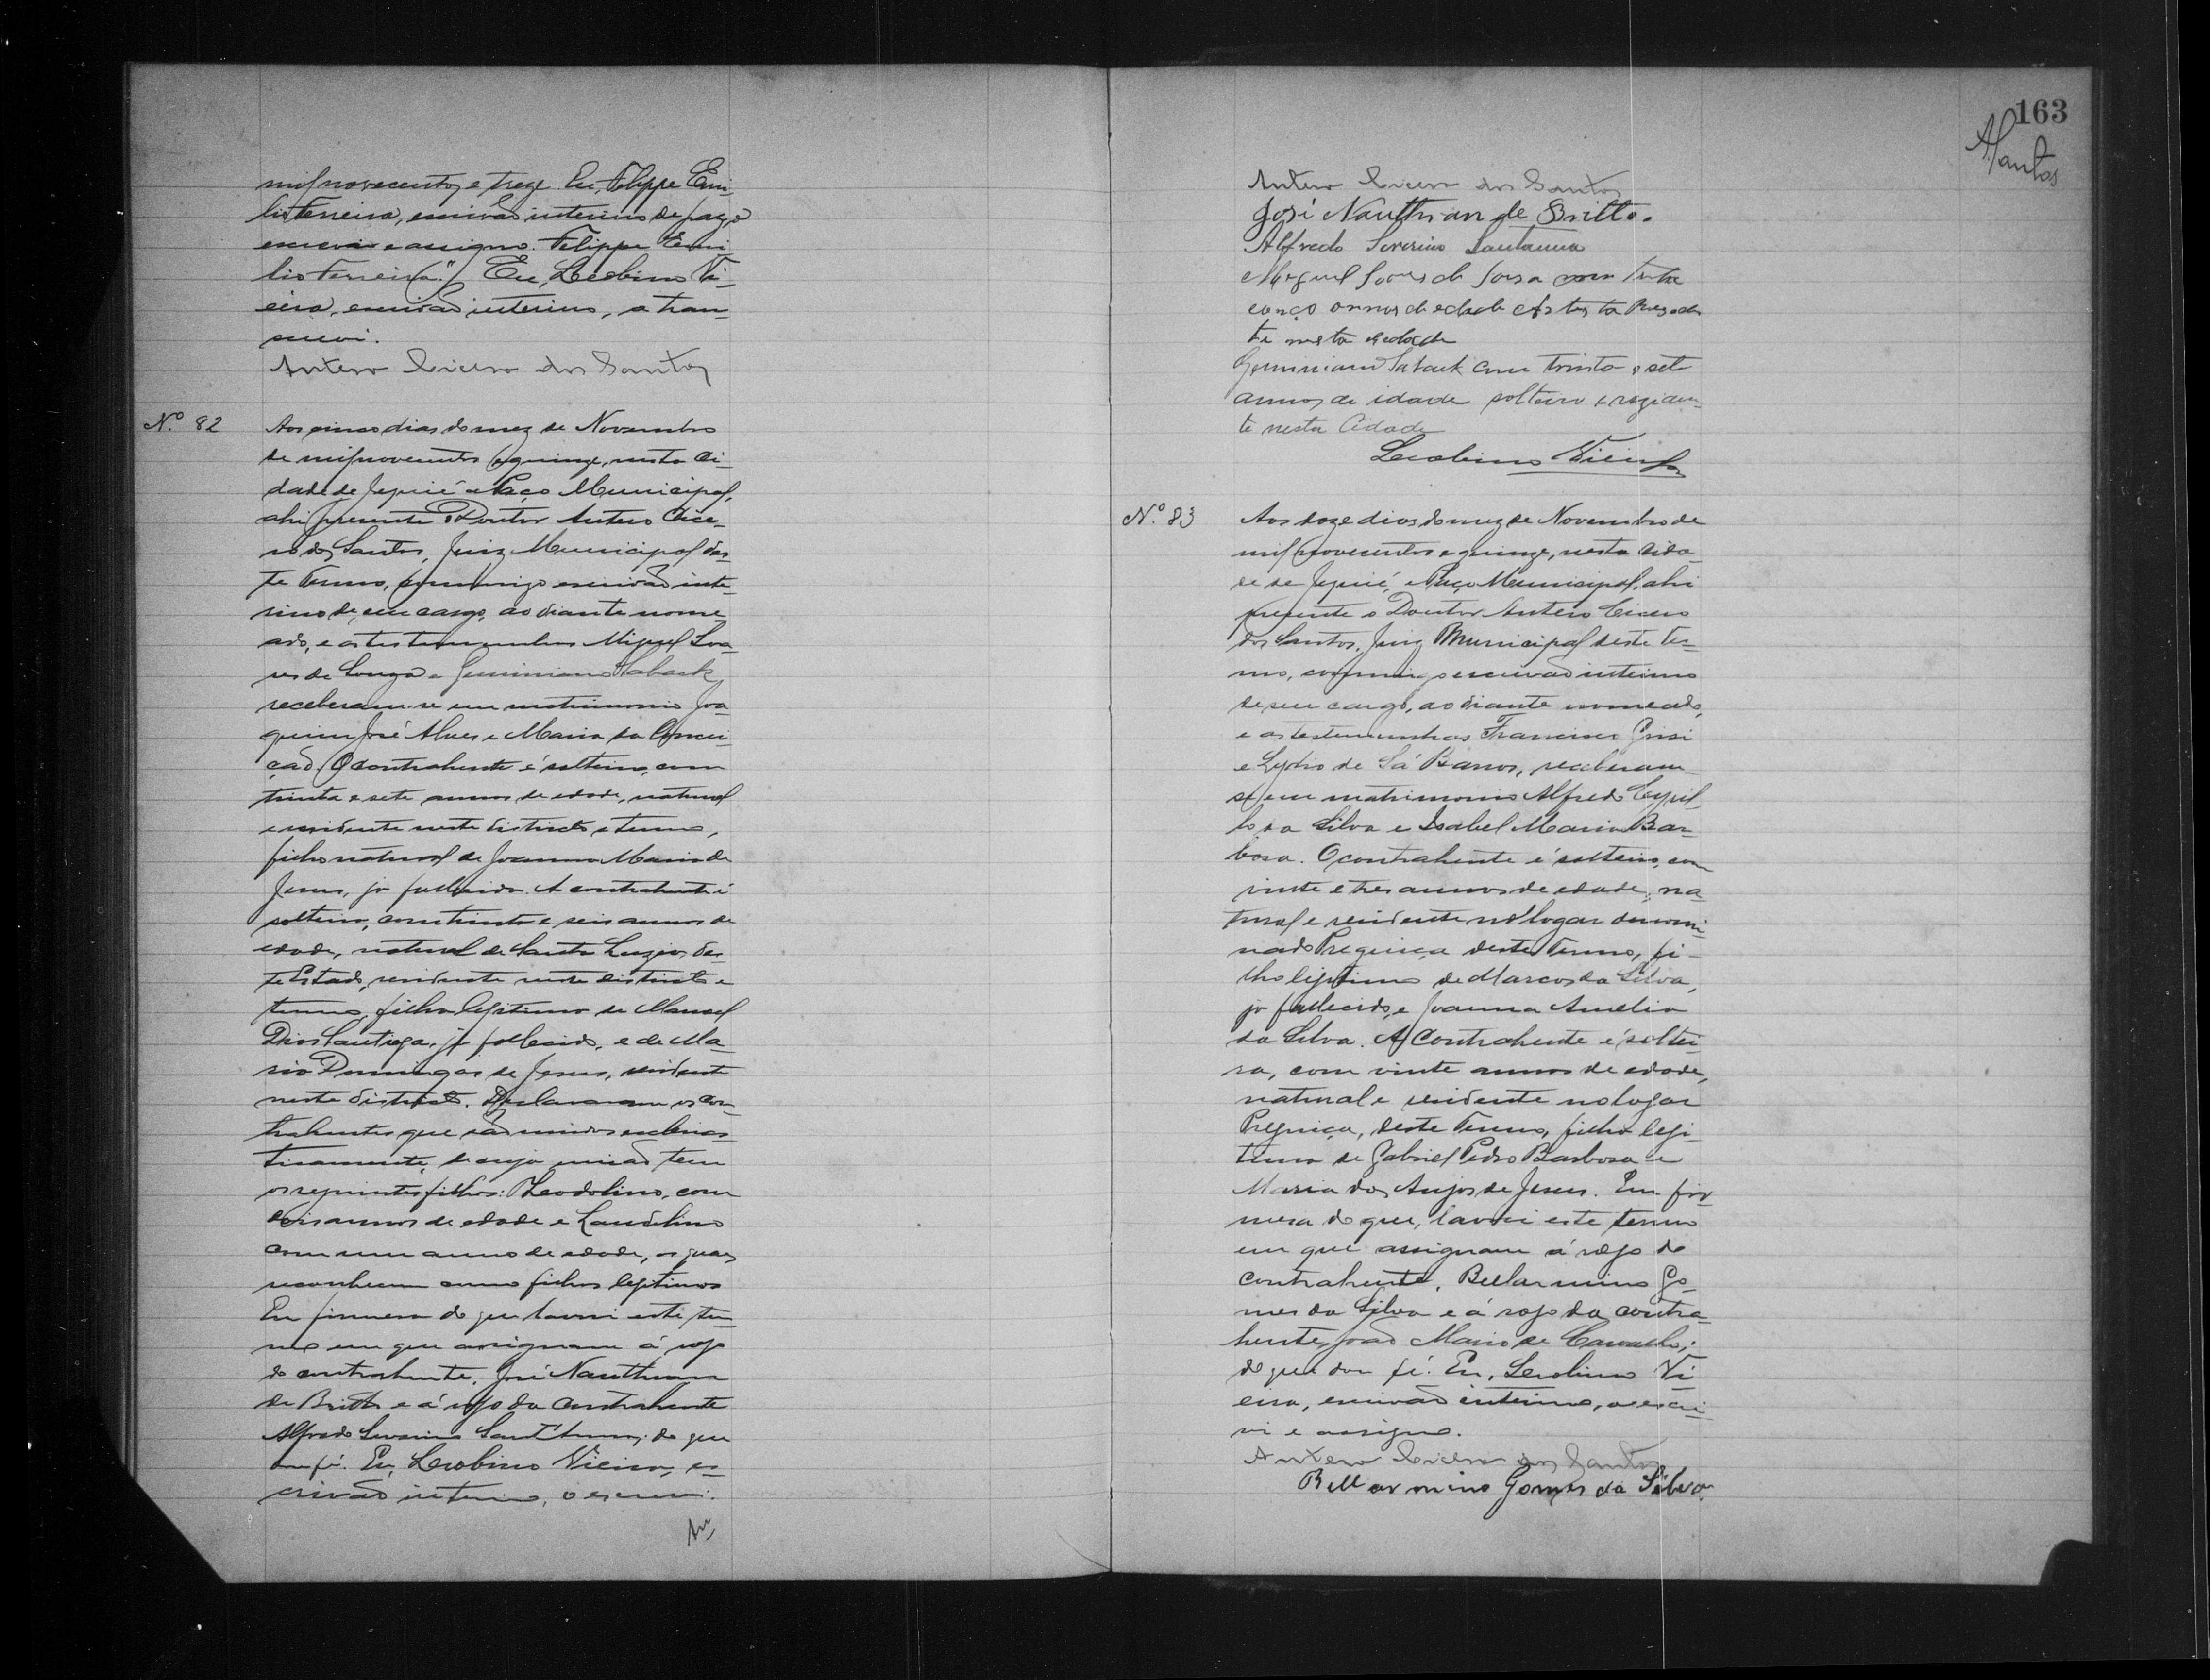 mil novecentos e treze. Eu, Felippe Emi-
lio Ferreira, escrivão interino de paz o
escrevi e assigno. Felippe Emi
lio Ferreira." Eu, Leobino Vi-
eira, escrivão interino, a trans-
crevi.
Antero Cicero dos Santos
Nº 82
Aos cinco dias do mez de Novembro
de mil novecentos e quinze, nesta Ci-
dade de Jequié e Paço Municipal,
ahi presente o Doutor Antero Cice-
ro dos Santos, Juiz Municipal des-
te Termo, commigo escrivão inte-
rino de seu cargo, ao diante nome-
ado, e as testemunhas Miguel Soa-
res de Souza e Geminiano Saback,
receberam-se em matrimonio Joa-
quim José Alves e Maria da Concei-
ção. O contrahente é solteiro, com
trinta e sete annos de edade, natural
e residente neste districto e termo,
filho natural de Joanna Maria de
Jesus, já fallecida. A contrahente é
solteira, com trinta e seis annos de
edade, natural de Santa Luzia, des-
te Estado, residente neste districto e
termo, filha legitima de Manoel
Dias Cantiga, já fallecido, e de Ma-
ria Domingas de Jesus, residente
neste districto. Declararam os con-
trahentes que são unidos ecclesias-
ticamente, de cuja união tem
os seguintes filhos: Theodolino, com
dois annos de edade e Laudelino
com um anno de edade, os quaes
reconhecem como filhos legitimos
Em firmeza do que lavrei este ter-
mo em que assignam á rogo
do contrahente, José Nauthman
de Britto e á rogo da contrahente
Alfredo Severino Sant'Anna; do que
dou fé. Eu, Leobino Vieira, es-
crivão interino, o escrevi.
163
ASantos
Antero Cicero dos Santos
José Nauthman de Britto.
Alfredo Severino Santanna
Miguel Soares de Sousa com trinta
cinço annos de edade Artista Rezeden
te nesta cidade
Geminiano Saback com trinta e sete
annos de idade solteiro e reziden-
te nesta Cidade
Leobino Vieira
Nº 83
Aos doze dias do mez de Novembro de
mil novecentos e quinze, nesta Cida-
de de Jequié, e Paço Municipal, ahi
presente o Doutor Antero Cicero
dos Santos, Juiz Municipal deste ter-
mo, commigo escrivão interino
de seu cargo, ao diante nomeado,
e as testemunhas Francisco Grisi
e Lydio de Sá Barros, receberam-
se em matrimonio Alfredo Cyril-
lo da Silva e Isabel Maria Bar-
bosa. O contrahente é solteiro, com
vinte e tres annos de edade, na-
tural e residente no logar denomi-
nado Preguiça deste Termo, fi-
lho legitimo de Marcos da Silva,
já fallecido, e Joanna Amelia
da Silva. A Contrahente é soltei-
ra, com vinte annos de edade,
natural e residente no logar
Preguiça, deste Termo, filha legi-
tima de Gabriel Pedro Barbosa e
Maria dos Anjos de Jesus. Em fir-
meza do que, lavrei este termo
em que assignam á rogo do
contrahente, Bellarmino Go-
mes da Silva e á rogo da contra-
hente, João Mario de Carvalho;
do que dou fé. Eu, Leobino Vi
eira, escrivão interino, o escre-
vi e assigno.
Antero Cicero dos Santos
Bellarmino Gomes da Silva